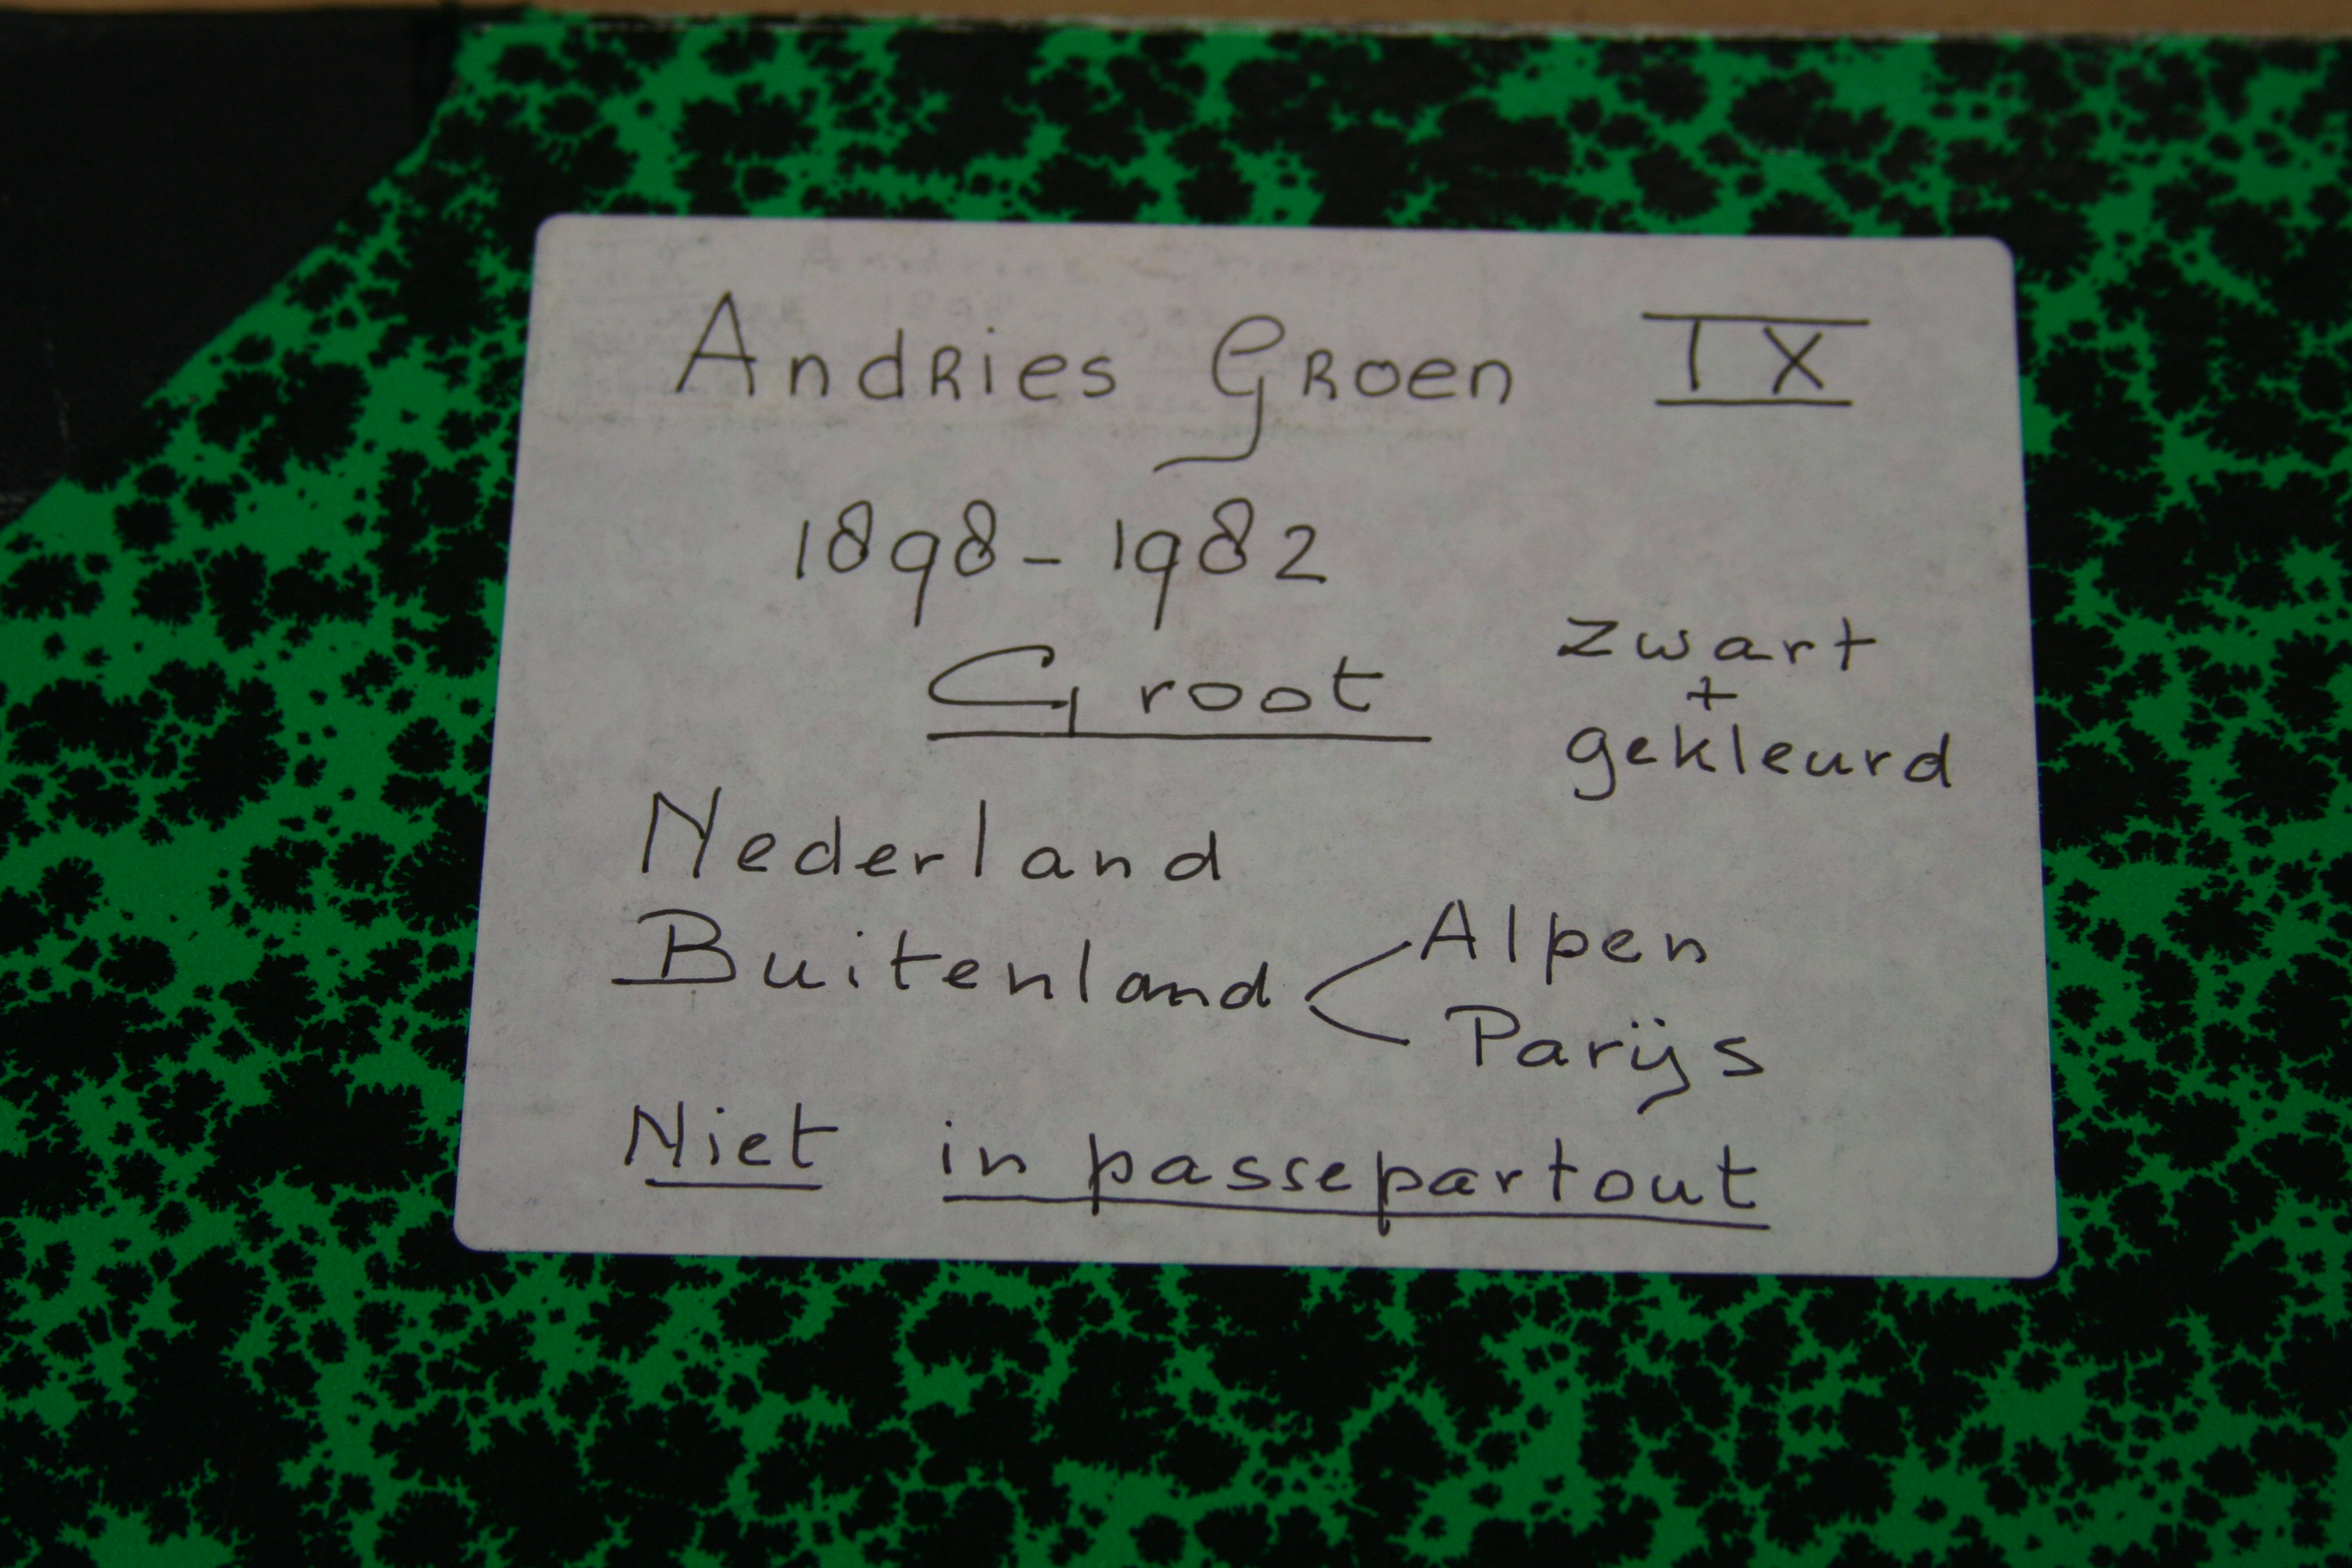 Andries Groen IX
1898 - 1982
Groot
zwart
+
gekleurd
Nederland
Buitenland < Alpen
Parijs
Niet in passepartout